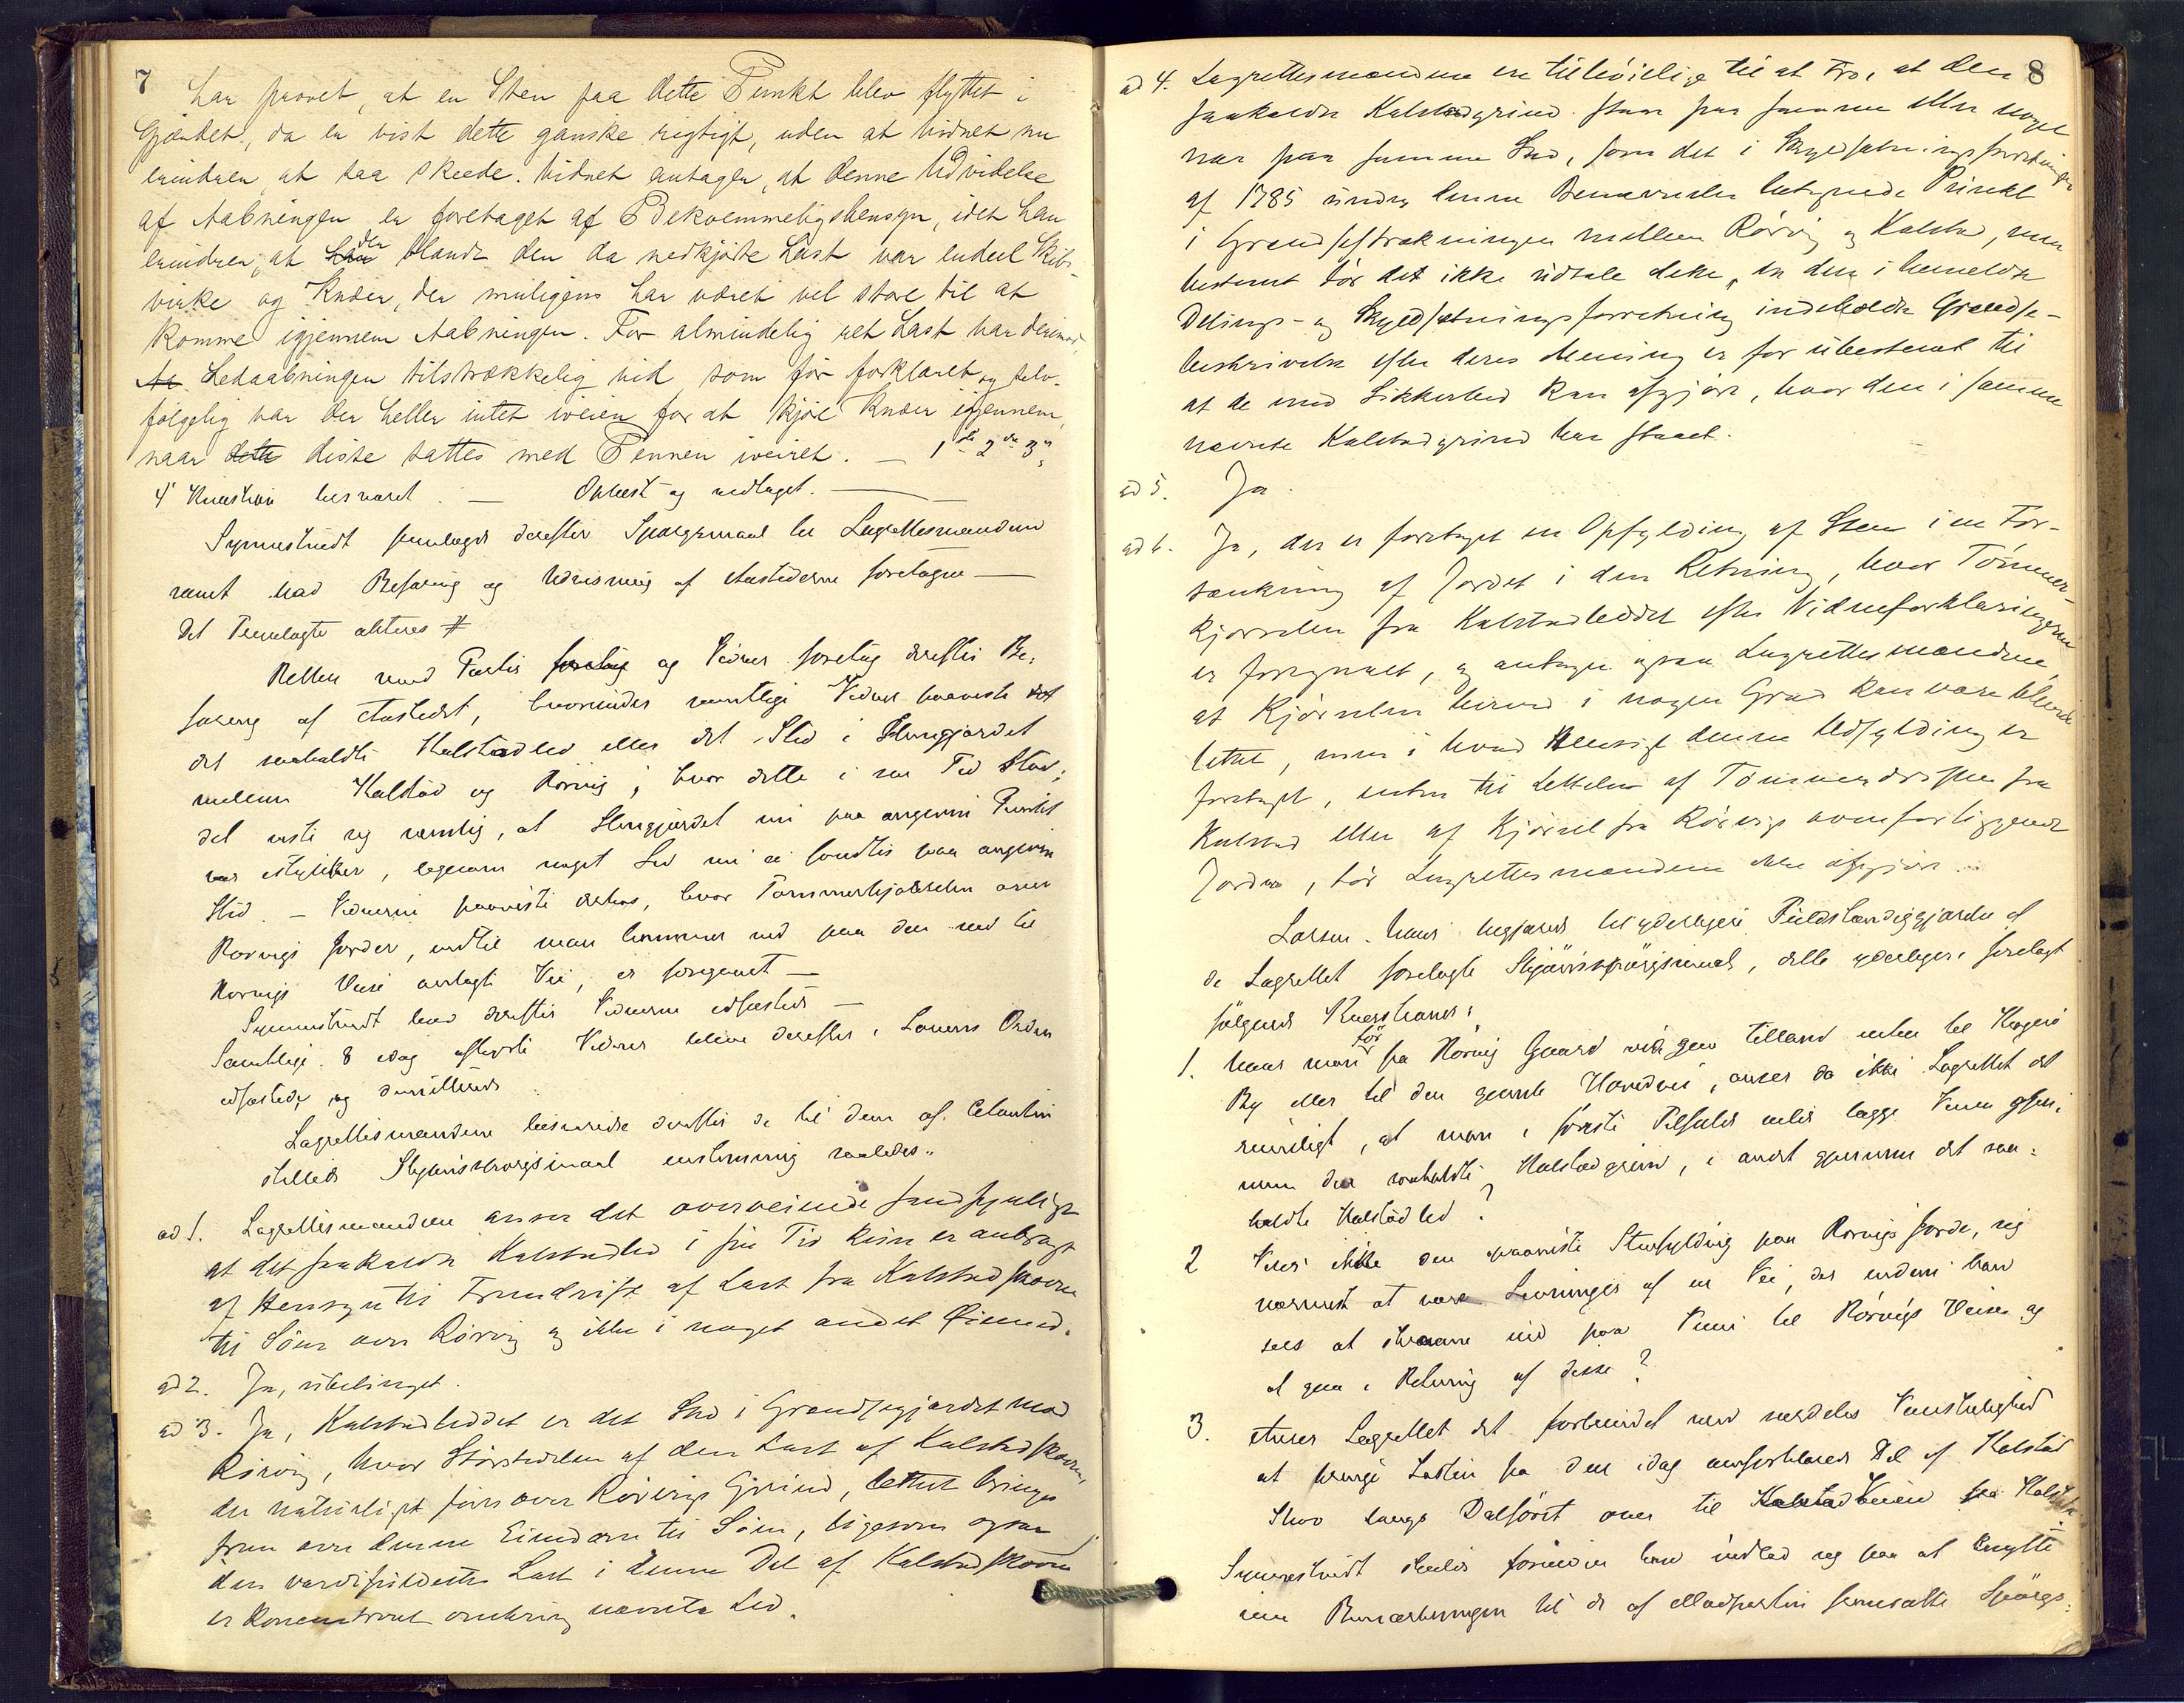 7
har prøvet, at en Sten paa dette Punkt blev flyttet i
Gjærdet, da er vist dette ganske rigtigt, uden at Vidnet nu
erindrer, at saa skeede. Vidnet antager, at denne Udvidelse
af Aabningen er foretaget af Bekvemmelighedshensyn, idet han
erindrer, at der blandt den da nedkjørte Last var endeel Skibs-
virke og Knæer, der muligens har været vel store til at
komme igjennem Aabningen. For almindelig ret Last var derimod
Ledaabningen tilstrækkelig vid som før forklaret og selv-
følgelig var der heller intet iveien for at kjøre Knæer igjennem,
naar dette disse sattes med Pennen iveiret. — 1ste 2den 3die
4de Kvæstion besvaret. — Oplæst og vedtaget. —
Synnestvedt fremlagde derefter Spørgsmaal til Lagrettesmændene
samt bad Befaring og Udvisning af Aastederne foretagne —
Det Fremlagte akteres #
Retten med Parter foretog og Vidner foretog derefter Be-
faring af Aastedet, hvorunder samtlige Vidner paaviste
det saakaldte Kalstadled eller det Sted i Stengjærdet
mellem Kalstad og Rørvig, hvor dette i sin Tid stod;
det viste sig nemlig, at Stengjærdet nu paa angivne Punkt
var istykker, ligesom noget Led nu ei fandtes paa angivne
Sted. — Vidnerne paaviste derhos, hvor Tømmerkjørselen over
Rørvigs Jorder, indtil man kommer ned paa den ned til
Rørvigs Huse anlagte Vei, er foregaaet —
Synnestvedt bad derefter Vidnerne edfæstede —
Samtlige 8 idag afhørte Vidner bleve derefter i Lovens Orden
edfæstede og dimitterede
Lagrettesmændene besvarede derefter de til dem af Citantin
stillede Skjønsspørgsmaal enstemmig saaledes:
ad 1. Lagrettesmændene anser det overveiende sandsynligt
at det saakaldte Kalstadled i sin Tid kun er anbragt
af Hensyn til Fremdrift af Last fra Kalstadskoven
til Søen over Rørvig og ikke i noget andet Øiemed.
ad 2. Ja, ubetinget.
ad 3. Ja, Kalstadleddet er det Sted i Grændsegjærdet mod
Rørvig, hvor Størstedelen af den Last af Kalstadskoven,
der naturligst føres over Rørvigs Grund, lettest bringes
frem over denne Eiendom til Søen, ligesom ogsaa
den værdifuldeste Last i denne Del af Kalstadskoven
er koncentreret omkring nævnte Led.
8
ad 4. Lagrettesmændene er tilbøielige til at tro, at den
saakaldte Kalstadgrind staar paa samme eller noget
nær paa samme Sted, som det i Skyldsætningsforretningen
af 1785 under denne Benævnelse betegnede Punkt
i Grændsestrækningen mellem Rørvig og Kalstad, men
bestemt tør det ikke udtale dette, da den i bemeldte
Delings- og Skyldsætningsforretning indeholdte Grændse-
beskrivelse efter deres Mening er for ubestemt til
at de med Sikkerhed kan afgjøre, hvor den i samme
nævnte Kalstadgrind har staaet.
ad 5. Ja.
ad 6. Ja, der er foretaget en Opfyldning af Sten i en For-
sænkning af Jordet i den Retning, hvor Tømmer-
kjørselen fra Kalstadleddet efter Vidneforklaringerne
er foregaaet, og antager ogsaa Lagrettesmændene,
at Kjørselen herved i nogen Grad kan være bleven
lettet, men i hvad Hensigt denne Udfyldning er
foretaget, enten til Lettelse af Tømmerdriften fra
Kalstad eller af Kjørsel fra Rørvigs ovenforliggende
Jorder, tør Lagrettesmændene ikke afgjøre.
Larsen. Hans begjærede til yderligere Fuldstændiggjørelse af
de Lagrettet forelagte Skjønsspørgsmaal, dette yderligere forelagt
følgende Kvæstioner:
1. Naar man før fra Rørvig Gaard vilde gaa tillands enten til Kragerø
By eller til den gamle Hovedvei, anser da ikke Lagrettet det
rimeligt, at man i første Tilfælde vilde lægge Veien gjen-
nem den saakaldte Kalstadgrind, i andet gjennem det saa-
kaldte Kalstadled?
2 Viser ikke den paaviste Stenfyldning paa Rørvigs Jorde, sig
nærmest at være Levninger af en Vei, der endnu kan
sees at komme ind paa Veien til Rørvigs Huse og
at gaa i Retning af disse?
3. Anser Lagrettet det forbundet med særdeles Vanskelighed
at bringe Lasten fra den idag omforklarede Del af Kalstad
Skov langs Dalføret over til Kalstadveien fra Kalstad.
Synnestvedt skulde formene kan indlod sig paa at knytte
sine Bemærkninger til de af Modparten fremsatte Spørgs-